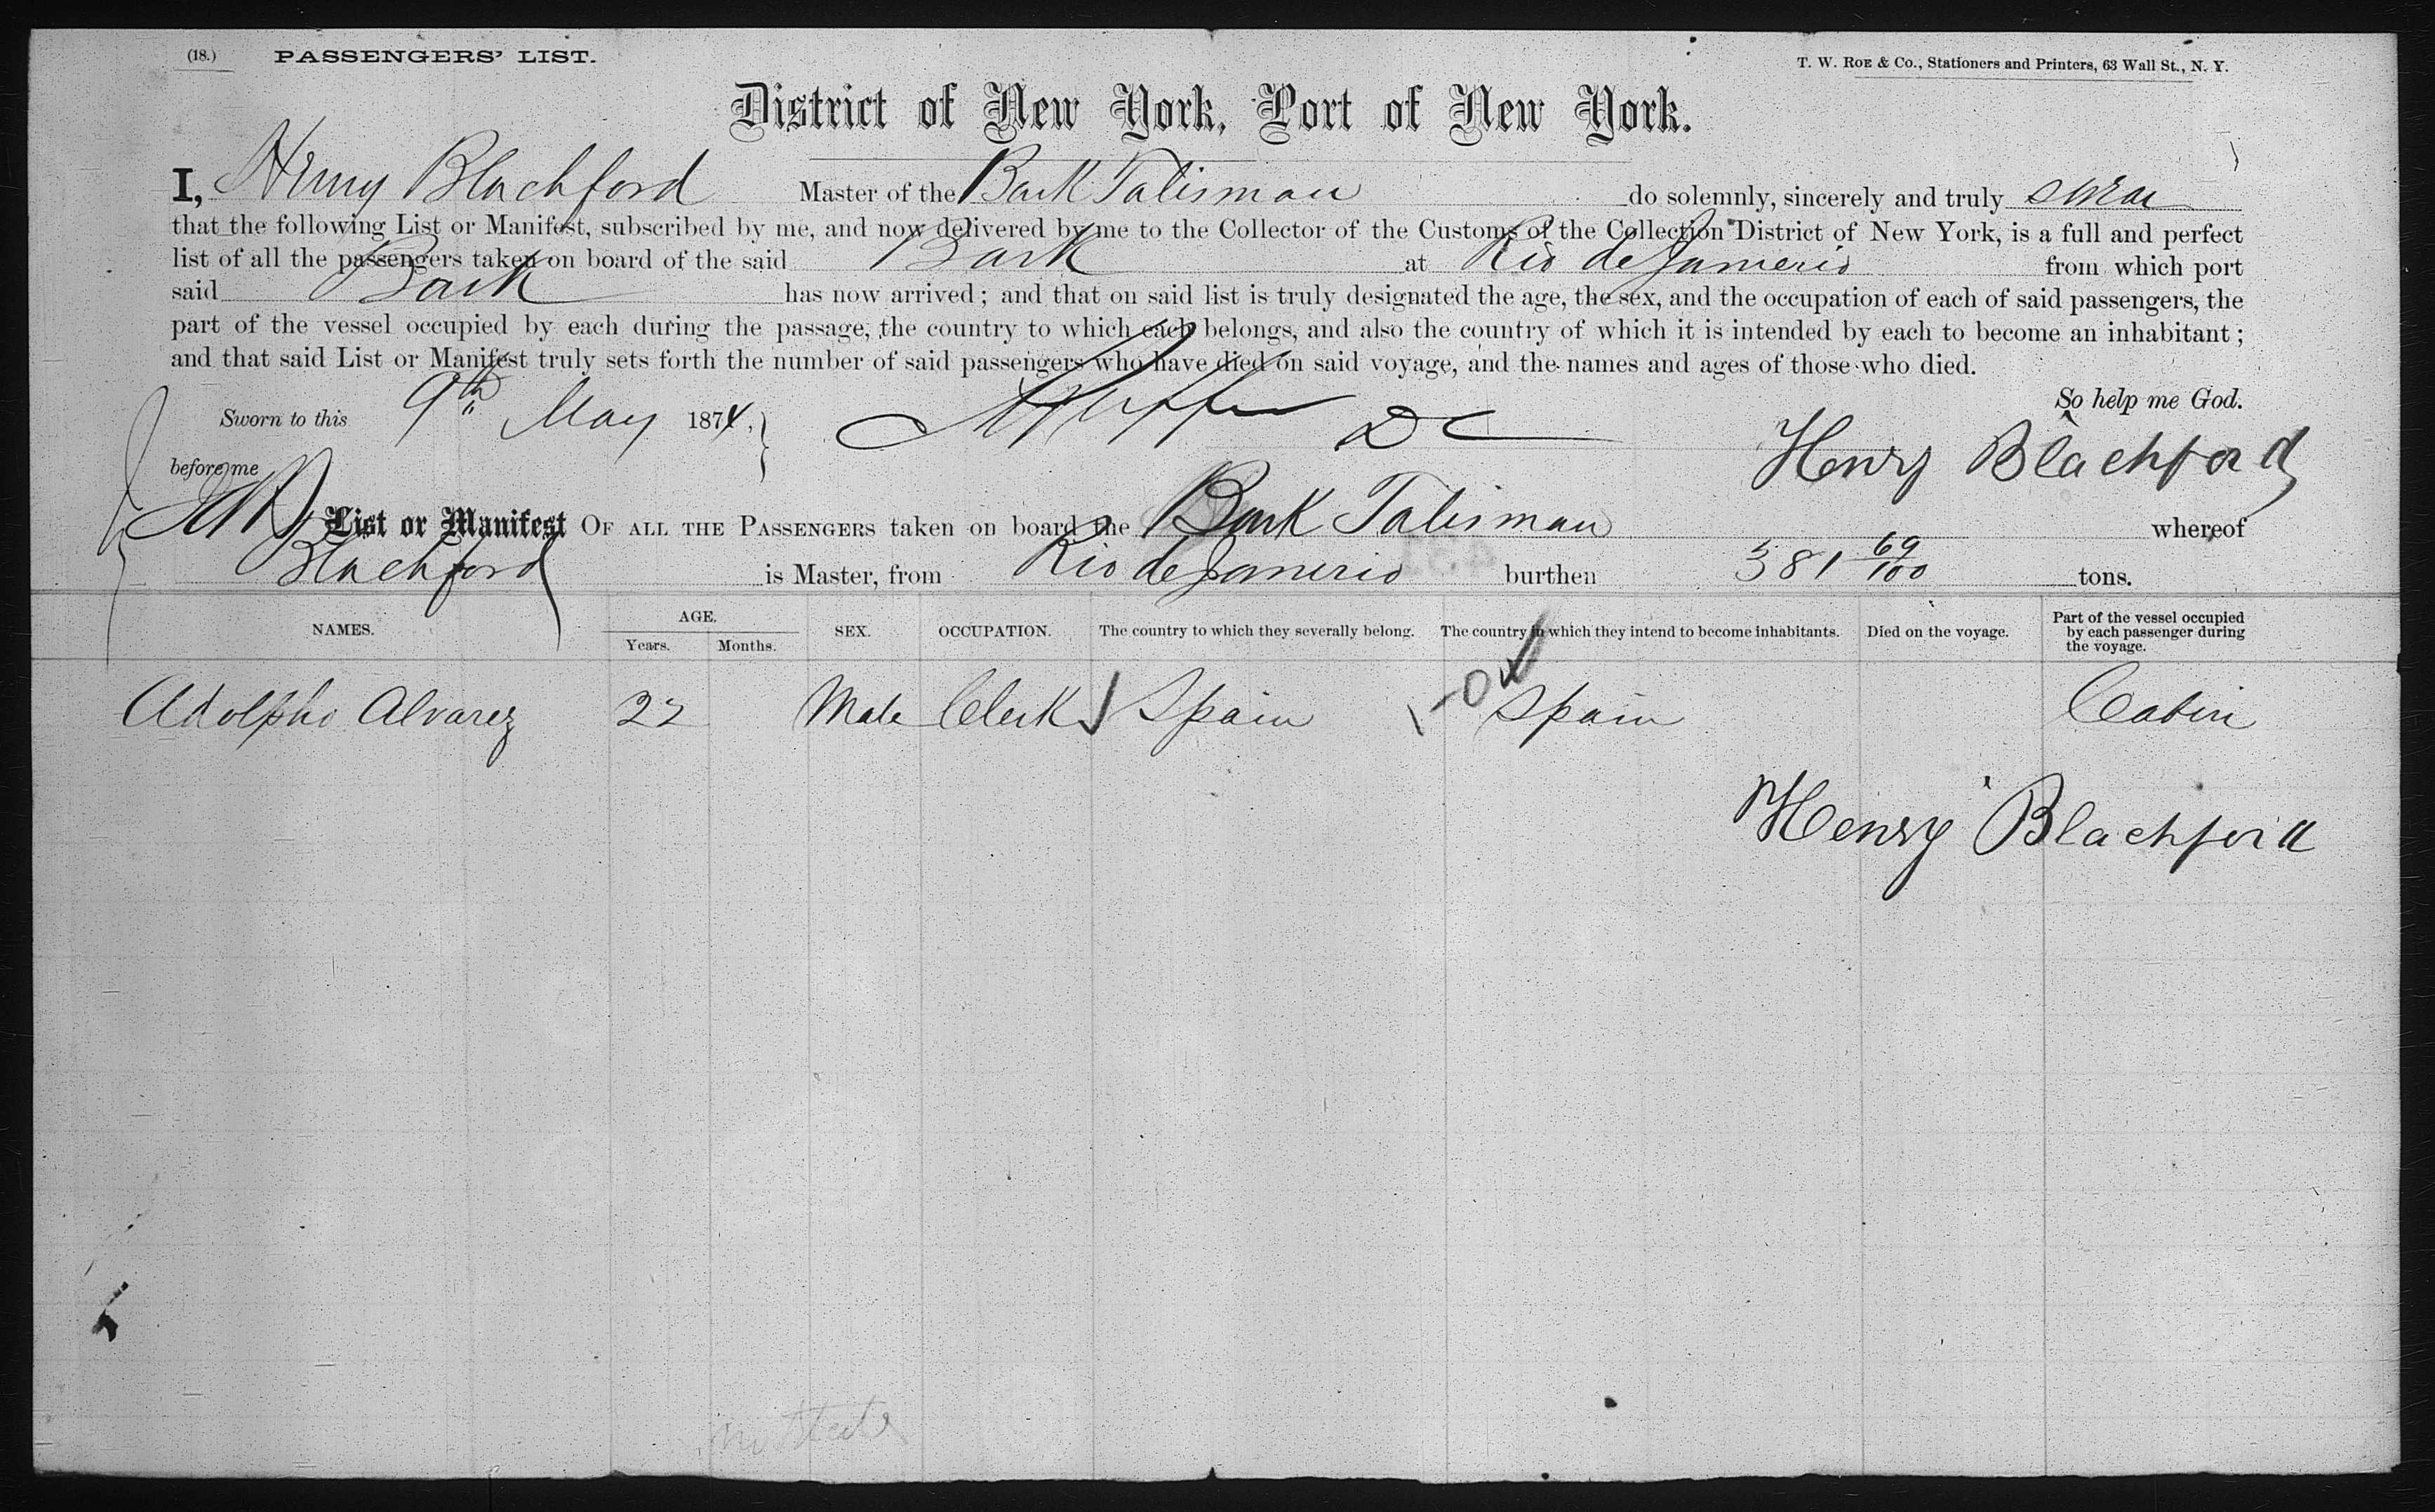 (18.) PASSENGERS' LIST.
T. W. ROE & Co., Stationers and Printers, 63 Wall St., N. Y.
District of New York, Port of New York.
I, Henry Blachford Master of the Bark Talisman do solemnly, sincerely and truly swear
that the following List or Manifest, subscribed by me, and now delivered by me to the Collector of the Customs of the Collection District of New York, is a full and perfect
list of all the passengers taken on board of the said Bark at Rio de Janerio from which port
said Bark has now arrived; and that on said list is truly designated the age, the sex, and the occupation of each of said passengers, the
part of the vessel occupied by each during the passage, the country to which each belongs, and also the country of which it is intended by each to become an inhabitant;
and that said List or Manifest truly sets forth the number of said passengers who have died on said voyage, and the names and ages of those who died.
So help me God.
Sworn to this 9th May 1874,
before me D C Henry Blachford
List or Manifest OF ALL THE PASSENGERS taken on board the Bark Talisman whereof
Blachford is Master, from Rio de Janerio burthen 381 69/100 tons.
NAMES. AGE. SEX. OCCUPATION. The country to which they severally belong. The country in which they intend to become inhabitants. Died on the voyage. Part of the vessel occupied by each passenger during the voyage.
Years. Months.
Adolpho Alvarez 22 Male Clerk Spain Spain Cabin
Henry Blachford